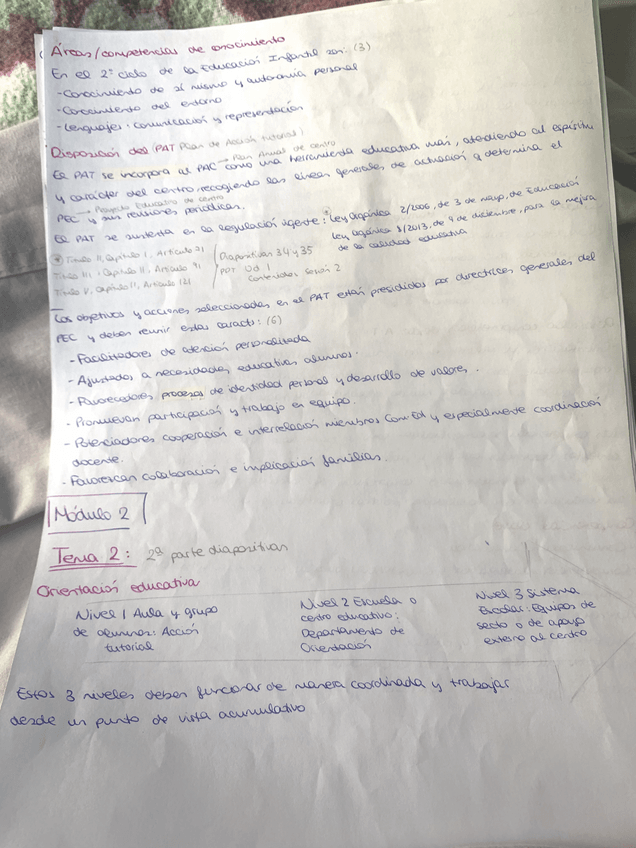 Áreas/competencias de conocimiento
En el 2º ciclo de la Educación Infantil son: (3)
- Conocimiento de sí mismo y autonomía personal
- Conocimiento del entorno
- Lenguajes: comunicación y representación
Disposición del PAT (Plan de Acción tutorial)
El PAT se incorpora al PAC → Plan Anual de centro como una herramienta educativa más, atendiendo al espíritu
y carácter del centro recogiendo las líneas generales de actuación q determina el
PEC → Proyecto Educativo de centro y sus revisiones periódicas.
El PAT se sustenta en la regulación vigente: Ley orgánica 2/2006, de 3 de mayo, de Educación
Ley orgánica 8/2013, de 9 de diciembre, para la mejora
de la calidad educativa
Título II, Capítulo I, Artículo 71
Título III, Capítulo II, Artículo 91
Título V, Capítulo II, Artículo 121
Diapositivas 34 y 35
PPT Ud 1
Contenidos sesión 2
Los objetivos y acciones seleccionadas en el PAT están presididos por directrices generales del
PEC y deben reunir estas caracts: (6)
- Facilitadores de atención personalizada
- Ajustados a necesidades educativas alumnos.
- Favorecedores procesos de identidad personal y desarrollo de valores.
- Promuevan participación y trabajo en equipo.
- Potenciadores cooperación e interrelación miembros Com Ed y especialmente coordinación
docente.
- Favorezcan colaboración e implicación familias.
Módulo 2
Tema 2: 2ª parte diapositivas
Orientación educativa
Nivel 1 Aula y grupo
de alumnos: Acción
tutorial
Nivel 2 Escuela o
centro educativo:
Departamento de
Orientación
Nivel 3 Sistema
Escolar: Equipos de
secto o de apoyo
externo al centro
Estos 3 niveles deben funcionar de manera coordinada y trabajar
desde un punto de vista acumulativo